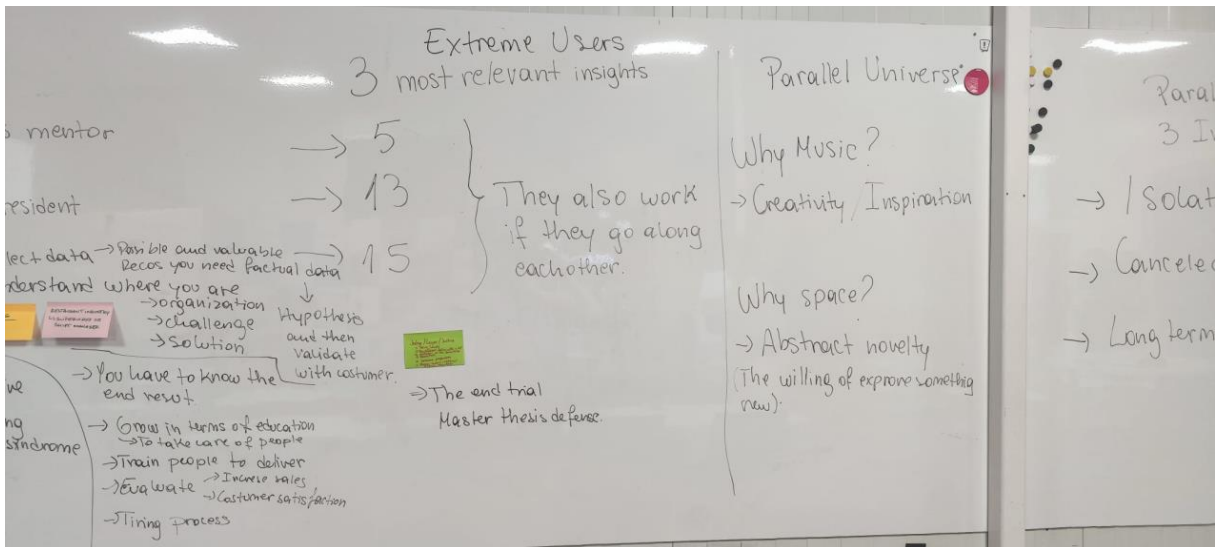 Extreme Users
3 most relevant insights
mentor
→ 5
resident
→ 13
lect data → Possible and valuable → 15
Recos you need factual data
nderstand where you are
→ organization
→ challenge
→ solution
↓
Hypothesis
and then
validate
with costumer.
They also work
if they go along
eachother.
→ You have to know the
end result
→ Grow in terms of education
→ To take care of people
→ Train people to deliver
→ Evaluate → Increse sales
→ Costumer satisfaction
→ Tiring process
ve
ng
syndrome
→ The end trial
Master thesis defense.
Parallel Universe
Why Music?
→ Creativity / Inspiration
Why space?
→ Abstract novelty
(The willing of exprove something
new).
Paral
3 I
→ Isolat
→ Cancele
→ Long term